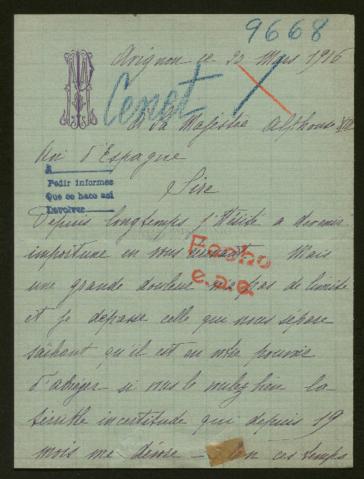 9668
Avignon ce 22 Mars 1916
Cenet
A Sa Majesté Alphonse XIII
Roi d'Espagne
A
Pedir informes
Que se hace así
Devolver
Sire
Depuis longtemps j'hésite a devenir
importune en vous écrivant Mais
Fecho
e.a.a.
une grande douleur n'a pas de limite
et je dépasse celle qui nous sépare
sachant qu'il est en votre pouvoir
d'abréger si vous le voulez bien la
terrible incertitude qui depuis 19
mois me dévore - En ces temps